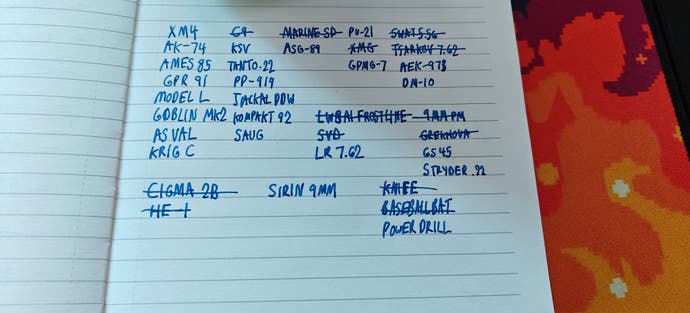 XM4 C9 MARINE SP PU-21 SWAT 5.56
AK-74 KSV ASG-89 XMG TSARKOV 7.62
AMES 85 TANTO.22 GPMG-7 AEK-973
GPR 91 PP-919 DM-10
MODEL L JACKAL PDW
GOBLIN MK2 KOMPAKT 92 LW3A1 FROSTLINE 9MM PM
AS VAL SAUG SVD GREKHOVA
KRIG C LR 7.62 GS45
STRYDER .22
CIGMA 2B SIRIN 9MM KNIFE
HE-1 BASEBALL BAT
POWER DRILL